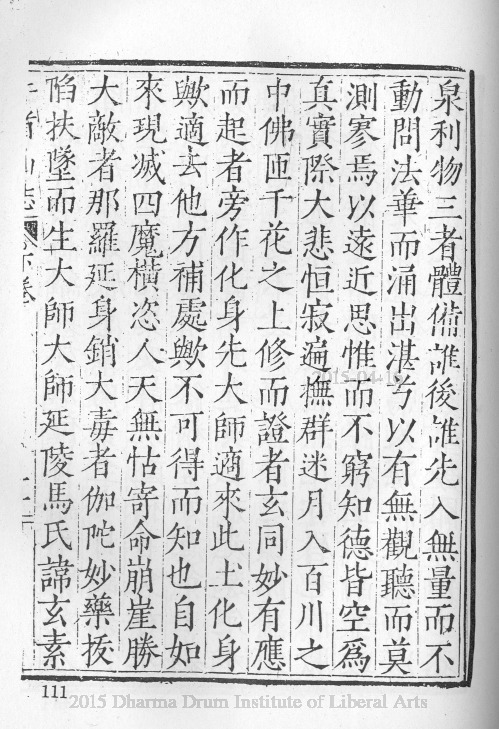 泉利物三者體備誰後誰先入無量而不
動問法華而涌出湛兮以有無觀聽而莫
測寥焉以遠近思惟而不窮知德皆空爲
真實際大悲恒寂遍撫群迷月入百川之
中佛匝千花之上修而證者玄同妙有應
而起者旁作化身先大師適來此土化身
歟適去他方補處歟不可得而知也自如
來現滅四魔橫恣人天無怙寄命崩崖勝
大敵者那羅延身銷大毒者伽陀妙藥拔
陷扶墜而生大師大師延陵馬氏諱玄素
山志 下卷
111
2015-04-16
2015 Dharma Drum Institute of Liberal Arts